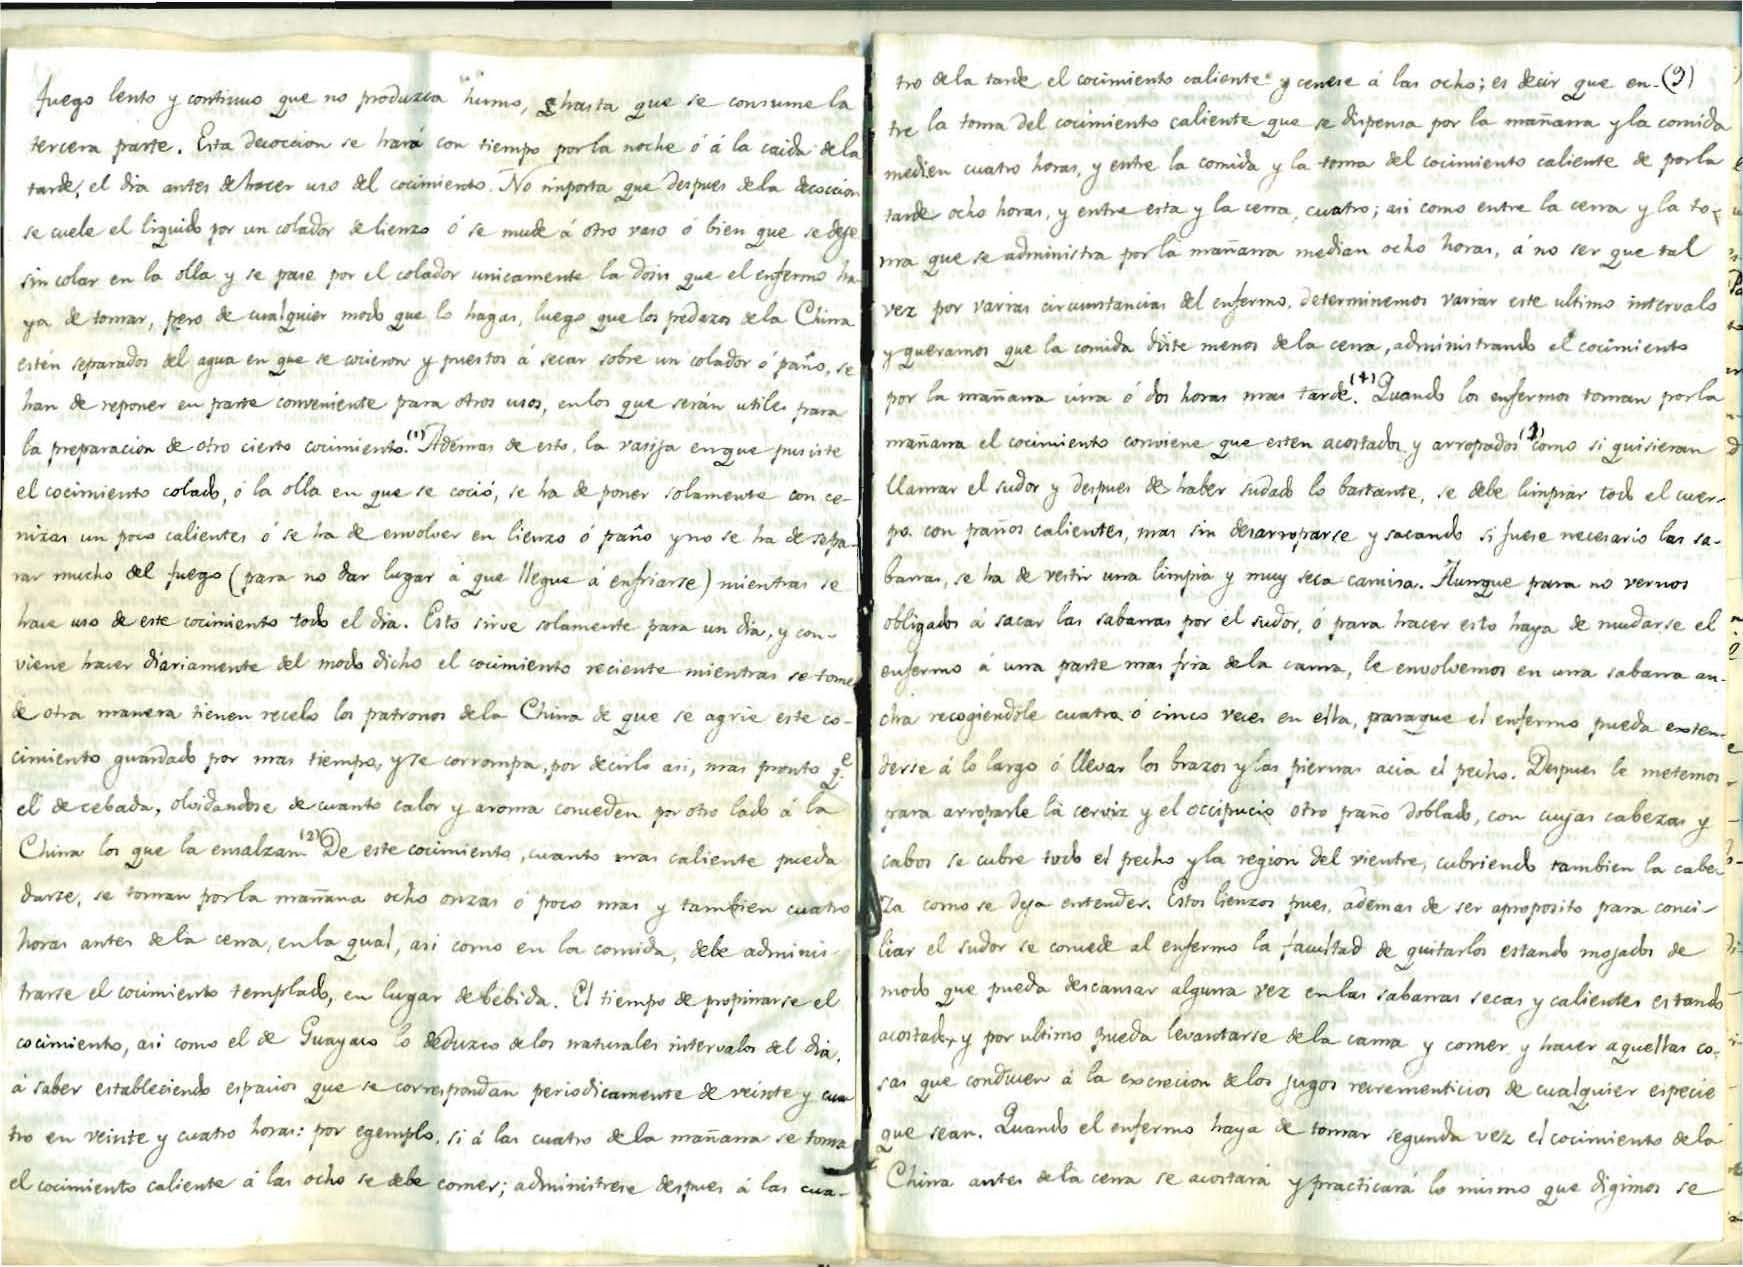 fuego lento y continuo que no produzca humo, hasta que se consume la
tercera parte. Esta decoccion se hará con tiempo por la noche ó á la caida de la
tarde, el dia antes de hacer uso del cocimiento. No importa que despues de la decoccion
se cuele el liquido por un colador de lienzo ó se mude á otro vaso ó bien que se deje
sin colar en la olla y se pase por el colador unicamente la dosis que el enfermo ha
ya de tomar, pero de cualquier modo que lo hagas, luego que los pedazos de la China
estén separados del agua en que se cocieron y puestos á secar sobre un colador ó paño, se
han de reponer en parte conveniente para otros usos, en los que serán utiles para
la preparacion de otro cierto cocimiento.(1) Ademas de esto, la vasija en que pusiste
el cocimiento colado, ó la olla en que se coció, se ha de poner solamente con ce-
nizas un poco calientes ó se ha de envolver en lienzo ó paño y no se ha de sepa-
rar mucho del fuego (para no dar lugar á que llegue á enfriarse) mientras se
hace uso de este cocimiento todo el dia. Esto sirve solamente para un dia, y con-
viene hacer diariamente del modo dicho el cocimiento reciente mientras se tome
de otra manera tienen recelo los patronos de la China de que se agrie este co-
cimiento guardado por mas tiempo, y se corrompa, por decirlo asi, mas pronto q.e
el de cebada, olvidandose de cuanto calor y aroma conceden por otro lado á la
China los que la ensalzan.(2) De este cocimiento, cuanto mas caliente pueda
darse, se toman por la mañana ocho onzas ó poco mas y tambien cuatro
horas antes de la cena, en la qual, asi como en la comida, debe adminis-
trarse el cocimiento templado, en lugar de bebida. El tiempo de propinarse el
cocimiento, asi como el de Guayaco lo deduzco de los naturales intervalos del dia,
á saber estableciendo espacios que se correspondan periodicamente de veinte y cua
tro en veinte y cuatro horas: por egemplo, si á las cuatro de la mañana se toma
el cocimiento caliente á las ocho se debe comer; administrese despues á las cua-
tro de la tarde el cocimiento caliente y cenese á las ocho; es decir que en- (9)
tre la toma del cocimiento caliente que se dispensa por la mañana y la comida
medien cuatro horas, y entre la comida y la toma del cocimiento caliente de por la
tarde ocho horas, y entre esta y la cena, cuatro; asi como entre la cena y la to-
ma que se administra por la mañana median ocho horas, á no ser que tal
vez por varias circunstancias del enfermo, determinemos variar este ultimo intervalo
y queramos que la comida diste menos de la cena, administrando el cocimiento
por la mañana una ó dos horas mas tarde.(+) Quando los enfermos toman por la
mañana el cocimiento conviene que esten acostados y arropados(1) como si quisieran
llamar el sudor y despues de haber sudado lo bastante, se debe limpiar todo el cuer-
po con paños calientes, mas sin desarroparse y sacando si fuese necesario las sa-
banas, se ha de vestir una limpia y muy seca camisa. Aunque para no vernos
obligados á sacar las sabanas por el sudor, ó para hacer esto haya de mudarse el
enfermo á una parte mas fria de la cama, le envolvemos en una sabana an-
cha recogiendole cuatro ó cinco veces en ella, para que el enfermo pueda exten-
derse á lo largo ó llevar los brazos y las piernas acia el pecho. Despues le metemos
para arroparle la cerviz y el occipucio otro paño doblado, con cuyas cabezas y
cabos se cubre todo el pecho y la region del vientre, cubriendo tambien la cabe-
za como se deja entender. Estos lienzos pues, ademas de ser aproposito para conci-
liar el sudor se concede al enfermo la facultad de quitarlos estando mojados de
modo que pueda descansar alguna vez en las sabanas secas y calientes estando
acostado, y por ultimo pueda levantarse de la cama y comer y hacer aquellas co-
sas que conducen á la excrecion de los jugos recrementicios de cualquier especie
que sean. Quando el enfermo haya de tomar segunda vez el cocimiento de la
China antes de la cena se acostará y practicará lo mismo que digimos se